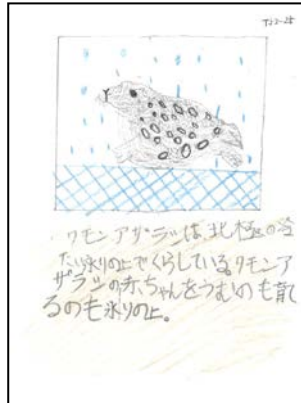 ワモンアザラシは、北極の冷
たい氷りの上でくらしている。ワモンア
ザラシの赤ちゃんをうむのも育て
るのも氷りの上。